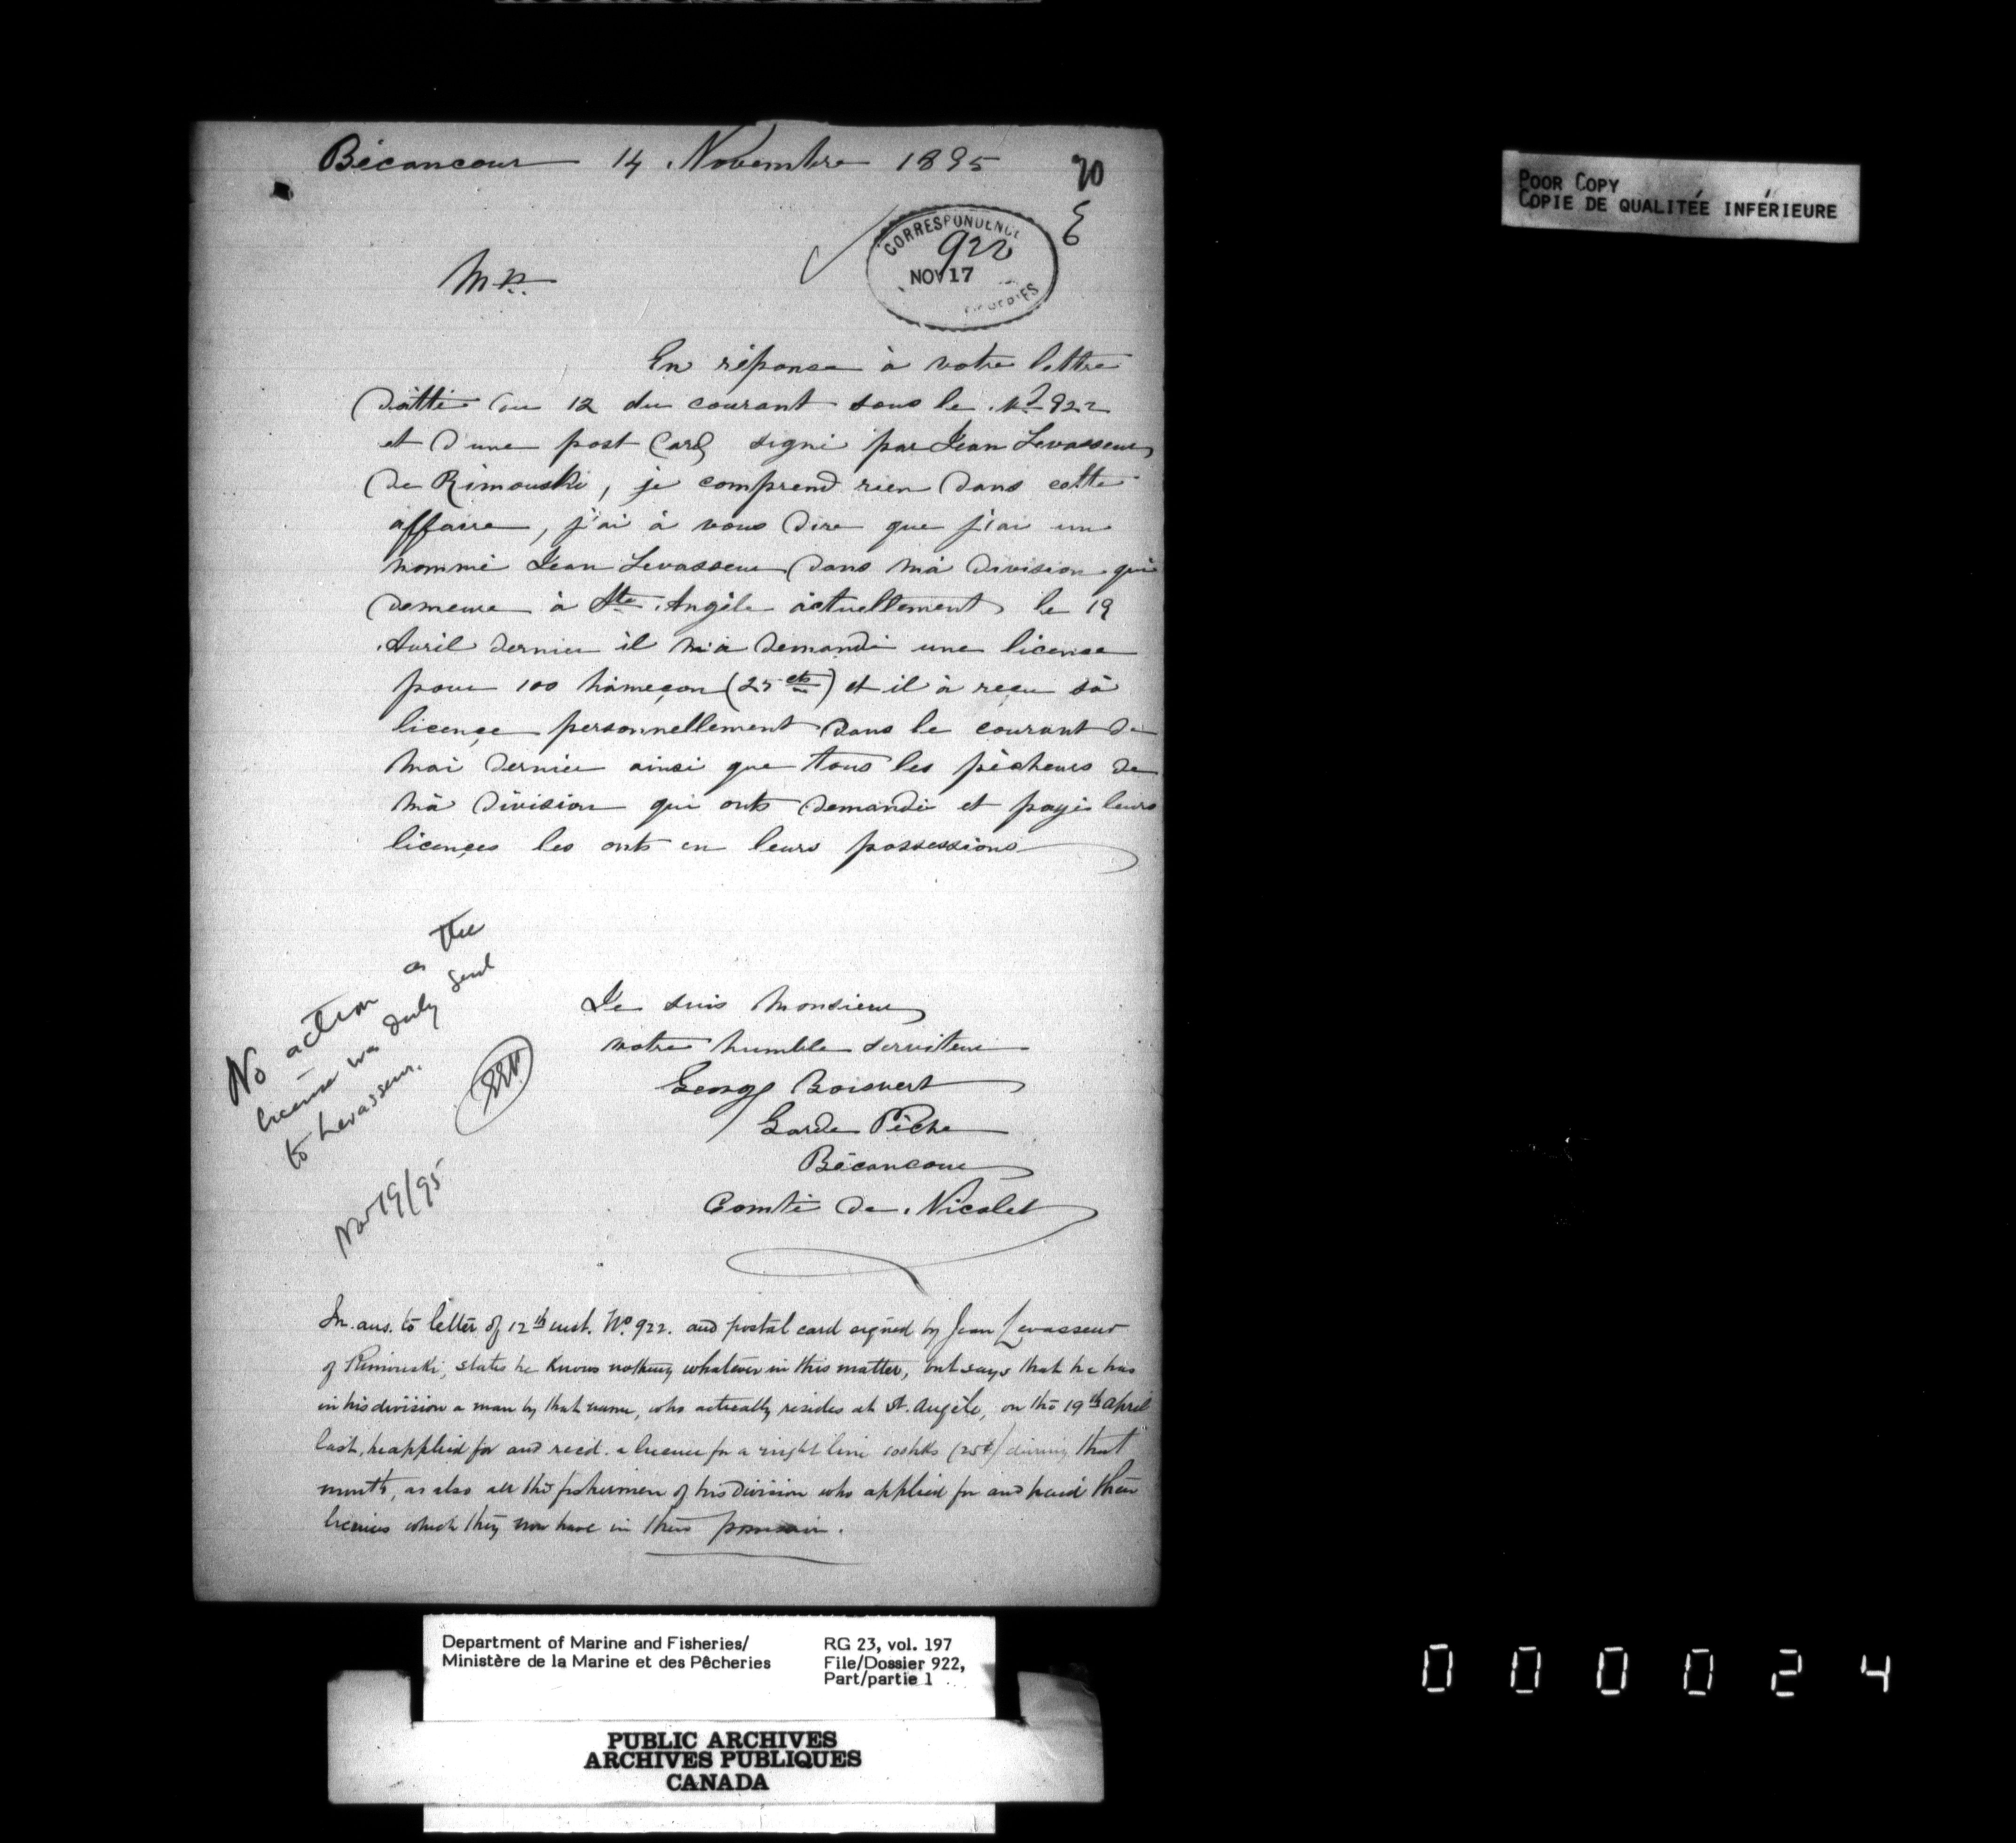 Bécancour 14 Novembre 1895
20
E
CORRESPONDENCE
922
NOV 17
Mr.
En réponse à votre lettre
dâtté du 12 du courant sous le No 922
et d'une post Card signé par Jean Levasseur
de Rimouski, je comprend rien dans cette
affaire, j'ai à vous dire que j'ai un
nommé Jean Levasseur dans mà division qui
demeure à Ste Angèle actuellement le 19
Avril dernier il m'a demandé une license
pour 100 hàmeçon (25 cts) et il à reçu sà
licençe personnellement dans le courant de
Mai dernier ainsi que tous les pècheurs de
mà division qui onts demandé et payés leurs
licençes les onts en leurs possessions
Je suis Monsieur
votre humble serviteur
George Boisvert
Garde Pêche
Bécancour
Comté de Nicolet
No action as the
license was duly send
to Levasseur.
Nov 19/95
In ans. to letter of 12th inst. No. 922. and postal card signed by Jean Levasseur
of Rimouski, states he knows nothing whatever in this matter, but says that he has
in his division a man by that name, who actually resides at St. Angèle, on the 19th April
last, he applied for and recd. a licence for a night line 100 hks (25¢) during that
month, as also all the fishermen of his division who applied for and paid their
licenses which they now have in their possession.
POOR COPY
COPIE DE QUALITÉE INFÉRIEURE
Department of Marine and Fisheries/
Ministère de la Marine et des Pêcheries
RG 23, vol. 197
File/Dossier 922,
Part/partie 1
PUBLIC ARCHIVES
ARCHIVES PUBLIQUES
CANADA
000024